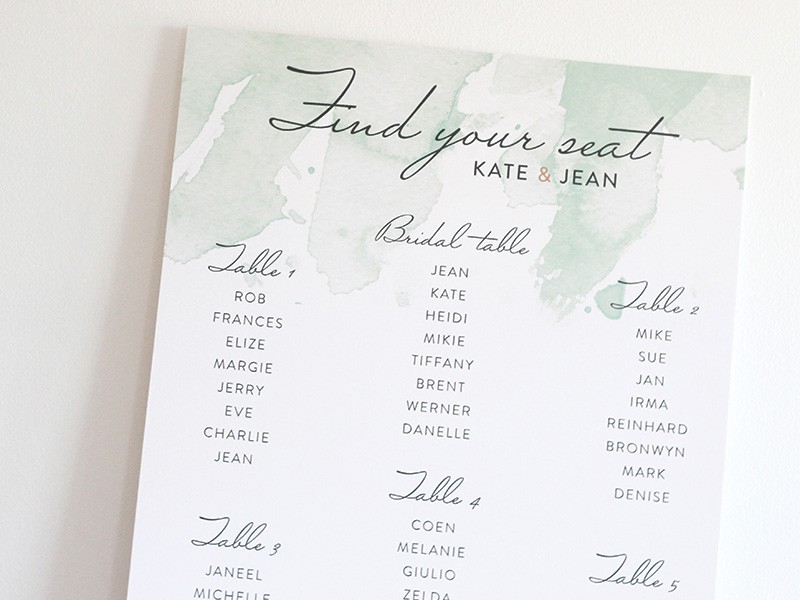 Find your seat
KATE & JEAN
Bridal table
JEAN
KATE
HEIDI
MIKIE
TIFFANY
BRENT
WERNER
DANELLE
Table 1
ROB
FRANCES
ELIZE
MARGIE
JERRY
EVE
CHARLIE
JEAN
Table 2
MIKE
SUE
JAN
IRMA
REINHARD
BRONWYN
MARK
DENISE
Table 3
JANEEL
MICHELLE
Table 4
COEN
MELANIE
GIULIO
ZELDA
Table 5